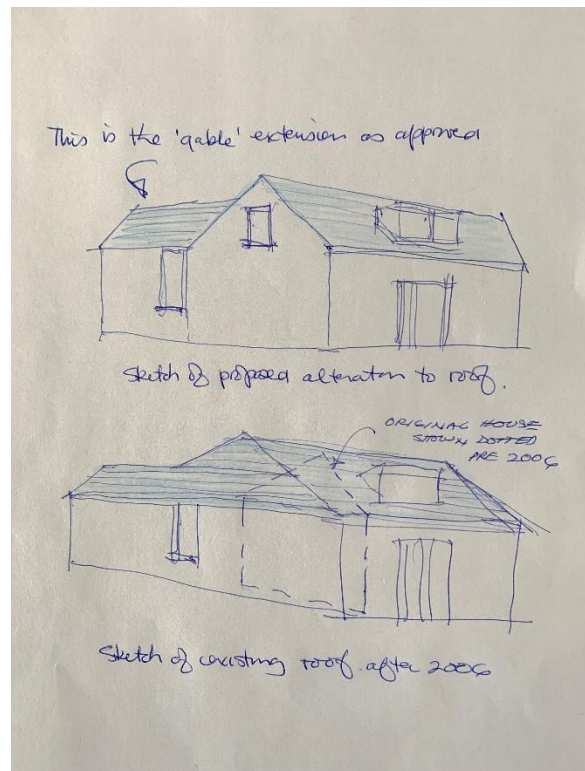 This is the 'gable' extension as approved
Sketch of proposed alteration to roof.
ORIGINAL HOUSE
SHOWN DOTTED
PRE 2006
Sketch of existing roof. after 2006